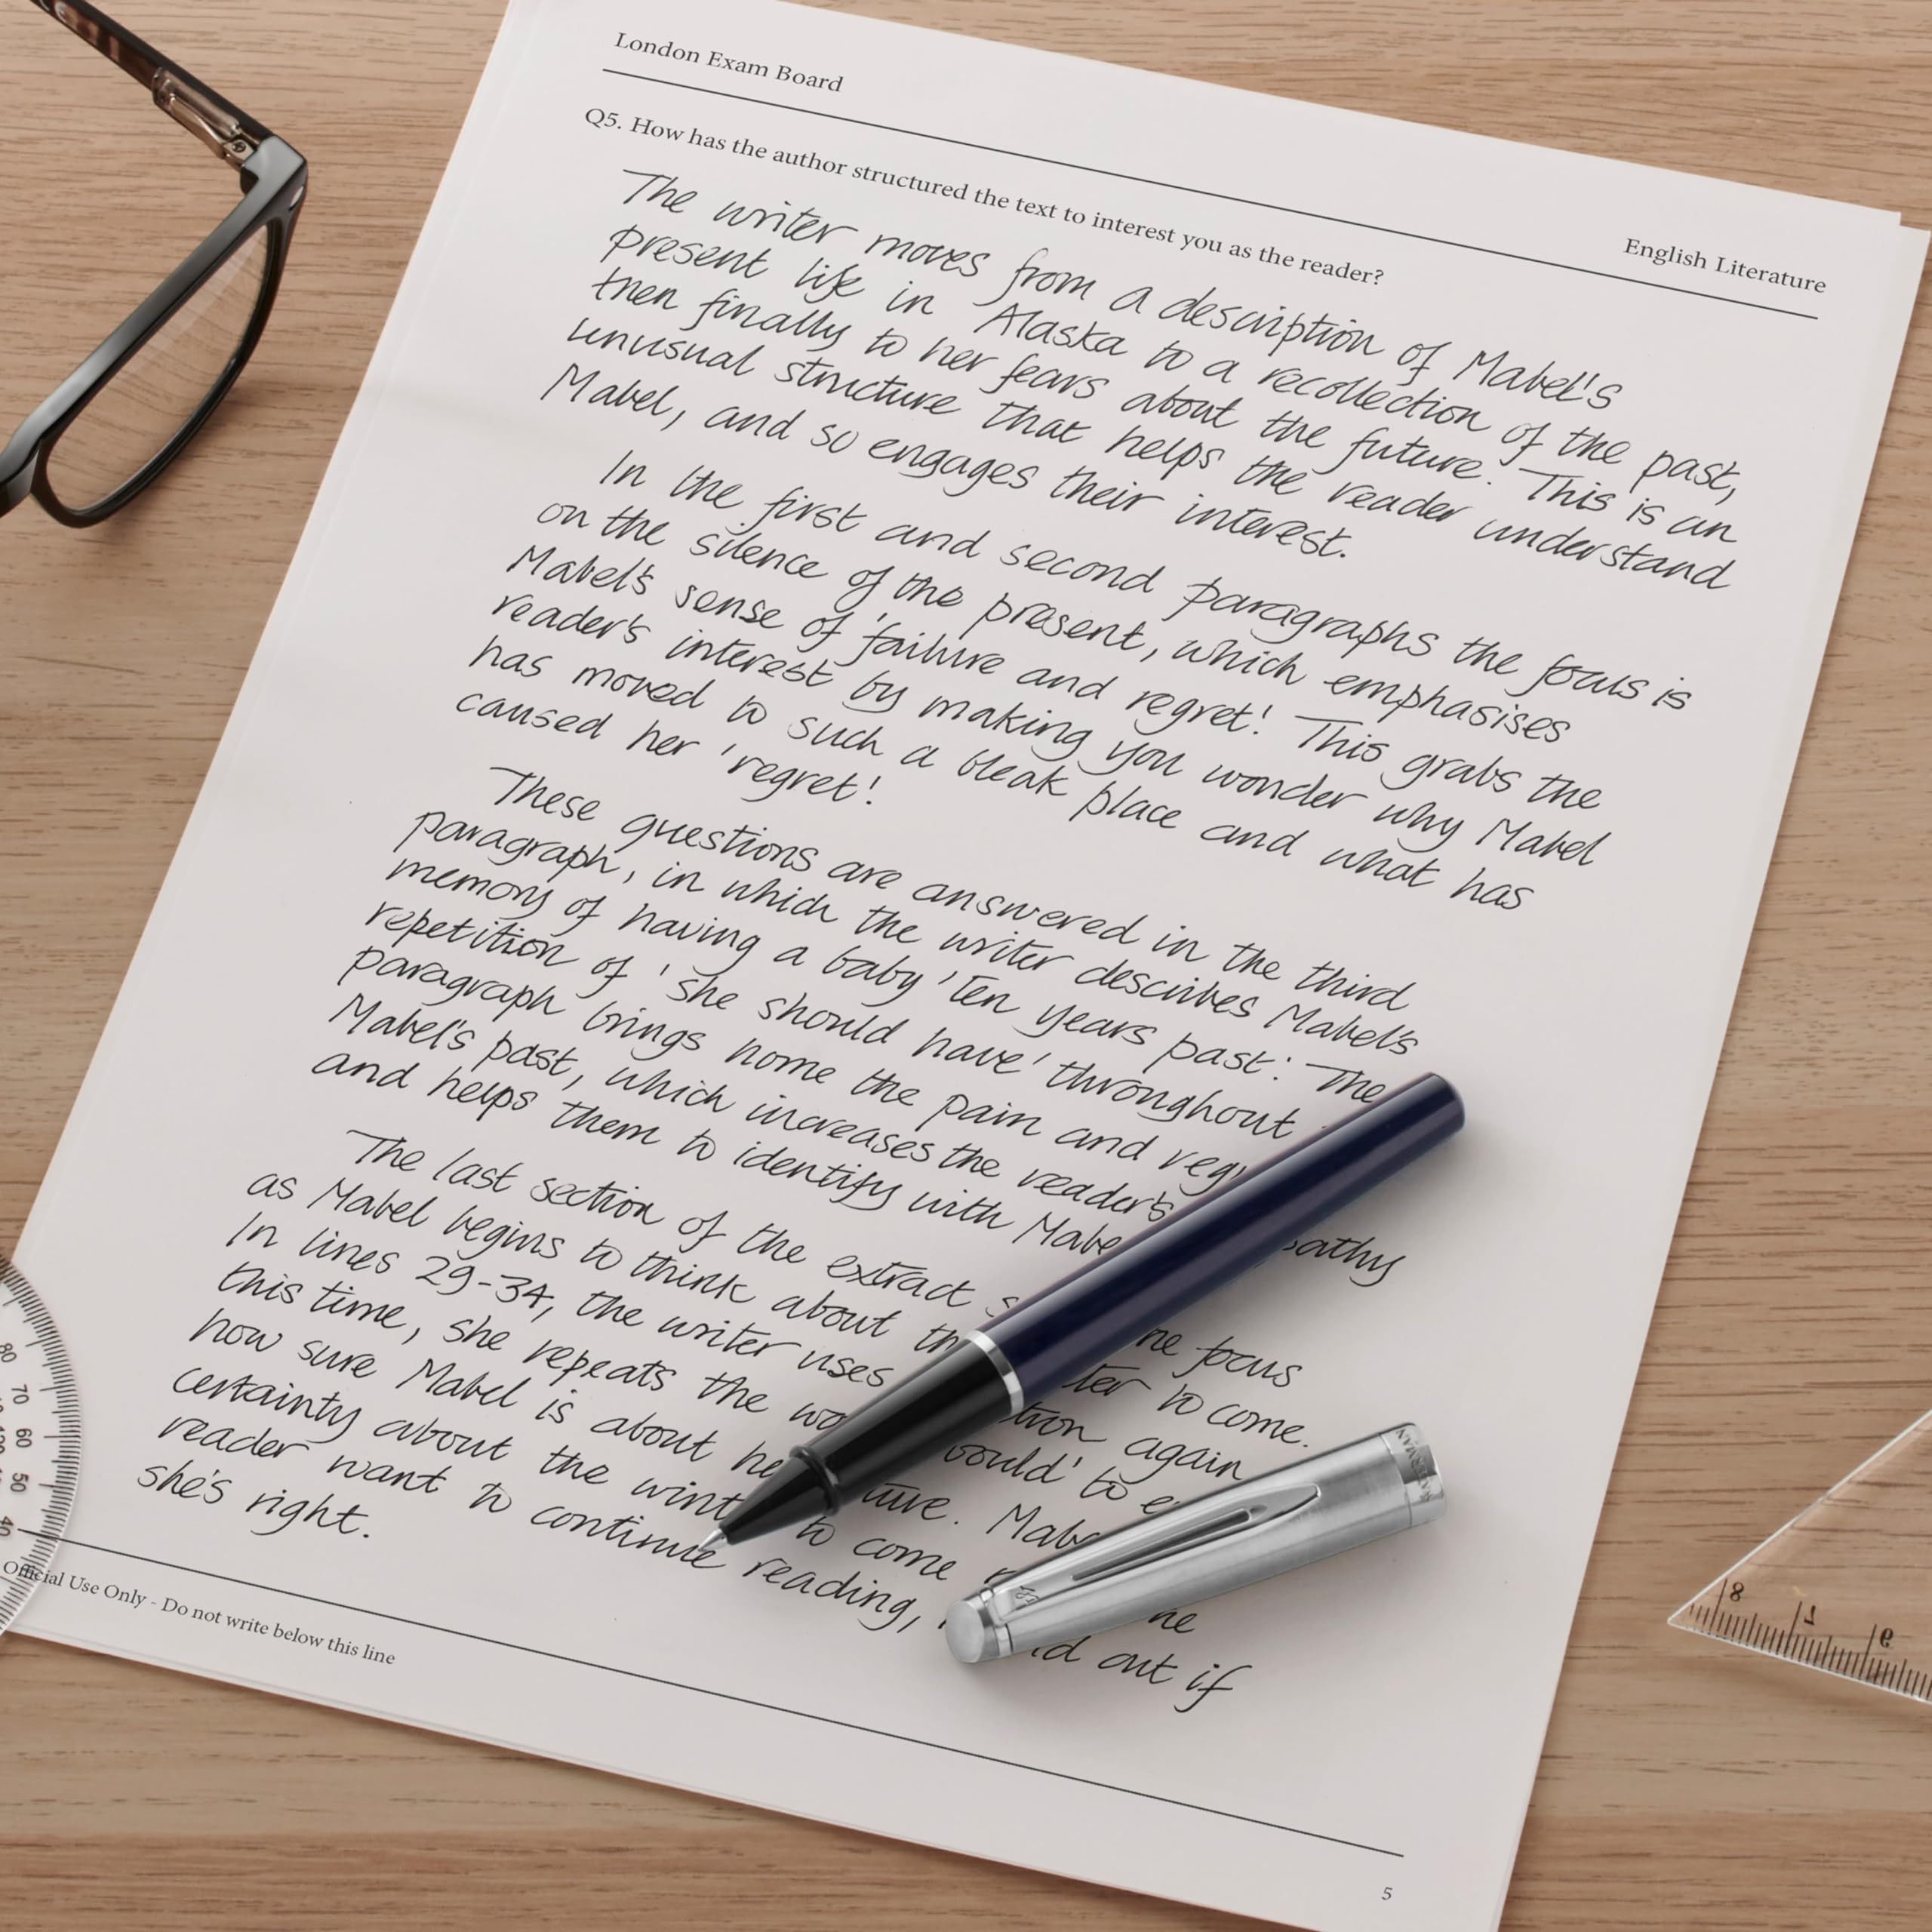 London Exam Board
English Literature
Q5. How has the author structured the text to interest you as the reader?
The writer moves from a description of Mabel's
present life in Alaska to a recollection of the past,
then finally to her fears about the future. This is an
unusual structure that helps the reader understand
Mabel, and so engages their interest.
In the first and second paragraphs the focus is
on the silence of the present, which emphasises
Mabel's sense of 'failure and regret'. This grabs the
reader's interest by making you wonder why Mabel
has moved to such a bleak place and what has
caused her 'regret'.
These questions are answered in the third
paragraph, in which the writer describes Mabel's
memory of having a baby 'ten years past'. The
repetition of 'she should have' throughout
paragraph brings home the pain and
Mabel's past, which increases the reader's
and helps them to identify with
The last section of the extract focus
as Mabel begins to think about to come.
In lines 29-34, the writer uses again
this time, she repeats the would' to
how sure Mabel is about
certainty about the to come
reader want to continue reading, out if
she's right.
Official Use Only - Do not write below this line
5
WATERMAN
80
70
60
50
40
8
7
6